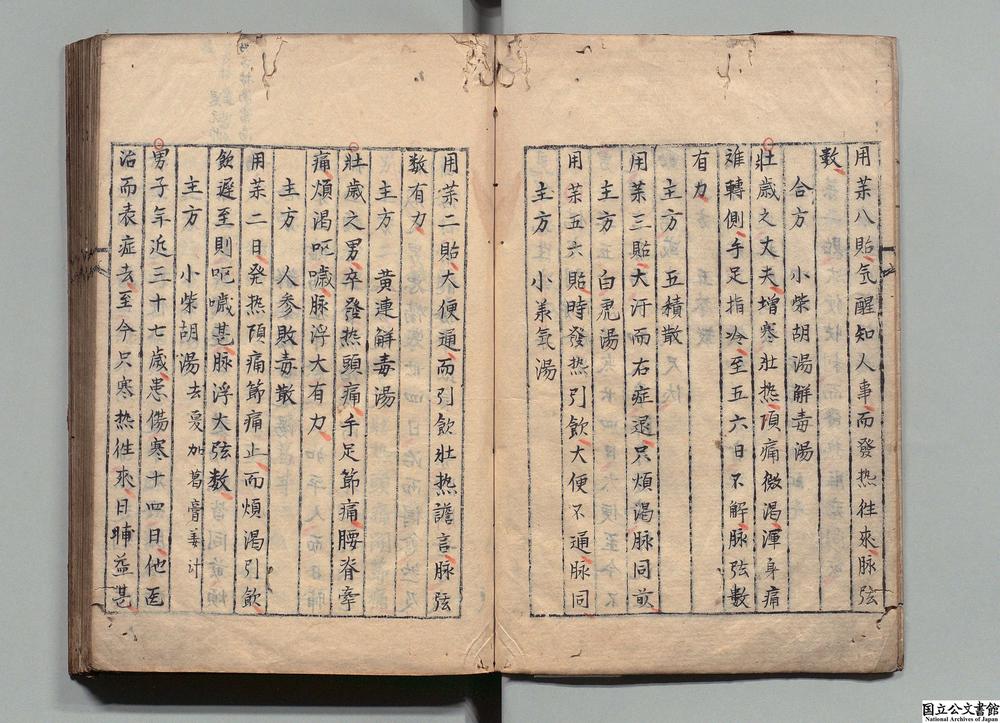 用茱八貼气醒知人事而發热往來脉弦
数
合方　小柴胡湯解毒湯
壮歳之丈夫增寒壮热頂痛微渇渾身痛
难轉側手足指冷至五六日不解脉弦数
有力
主方　五積散
用茱三貼大汗而右症退只煩渇脉同前
主方　白虎湯
用茱五六貼時發热引飲大便不通脉同
主方　小美氣湯
用茱二貼大便通而引飲壮热譫言脉弦
数有力
主方　黄連解毒湯
壮歳之男卒發热頭痛手足節痛腰脊牽
痛煩渇呕噦脉浮大有力
主方　人参敗毒散
用茱二日發热頂痛節痛止而煩渇引飲
飲遲至則呕噦甚脉浮大弦数
主方　小柴胡湯去夏加葛膏姜汁
男子年近三十七歳患傷寒十四日他医
治而表症去至今只寒热往來日晡益甚
国立公文書館
National Archives of Japan